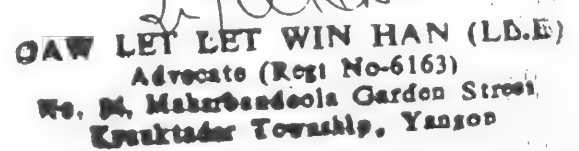 DAW LET LET WIN HAN (LL.B)
Advocate (Regt No-6163)
No. Maharbandoola Garden Street,
Kyauktadar Township, Yangon